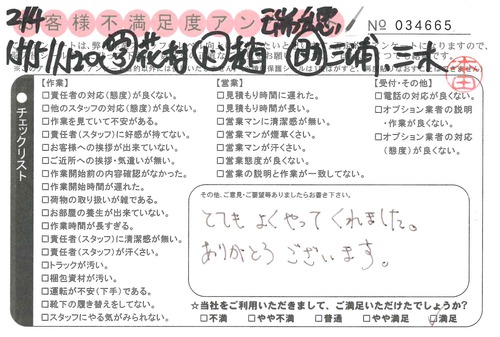 お客様不満足度アンケート
№ 034665
2/4
花村
三浦 三木
チェックリスト
【作業】
□責任者の対応(態度)が良くない。
□他のスタッフの対応(態度)が良くない。
□作業を見ていて不安がある。
□責任者(スタッフ)に好感が持てない。
□お客様への挨拶が出来ていない。
□ご近所への挨拶・気遣いが無い。
□作業開始前の内容確認がなかった。
□作業開始時間が遅れた。
□荷物の取り扱いが雑である。
□お部屋の養生が出来ていない。
□作業時間が長すぎる。
□責任者(スタッフ)に清潔感が無い。
□責任者(スタッフ)が汗くさい。
□トラックが汚い。
□梱包資材が汚い。
□運転が不安(下手)である。
□靴下の履き替えをしてない。
□スタッフにやる気がみられない。
【営業】
□見積もり時間に遅れた。
□見積もり時間が長い。
□営業マンに清潔感が無い。
□営業マンが煙草くさい。
□営業マンが汗くさい。
□営業態度が良くない。
□営業の説明と作業が一致してない。
【受付・その他】
□電話の対応が良くない。
□オプション業者の説明
・作業が良くない。
□オプション業者の対応
(態度)が良くない。
その他、ご意見・ご要望等ありましたらお書き下さい。
とてもよくやってくれました。
ありがとうございます。
☆当社をご利用いただきまして、ご満足いただけたでしょうか?
□不満 □やや不満 □普通 □やや満足 □満足